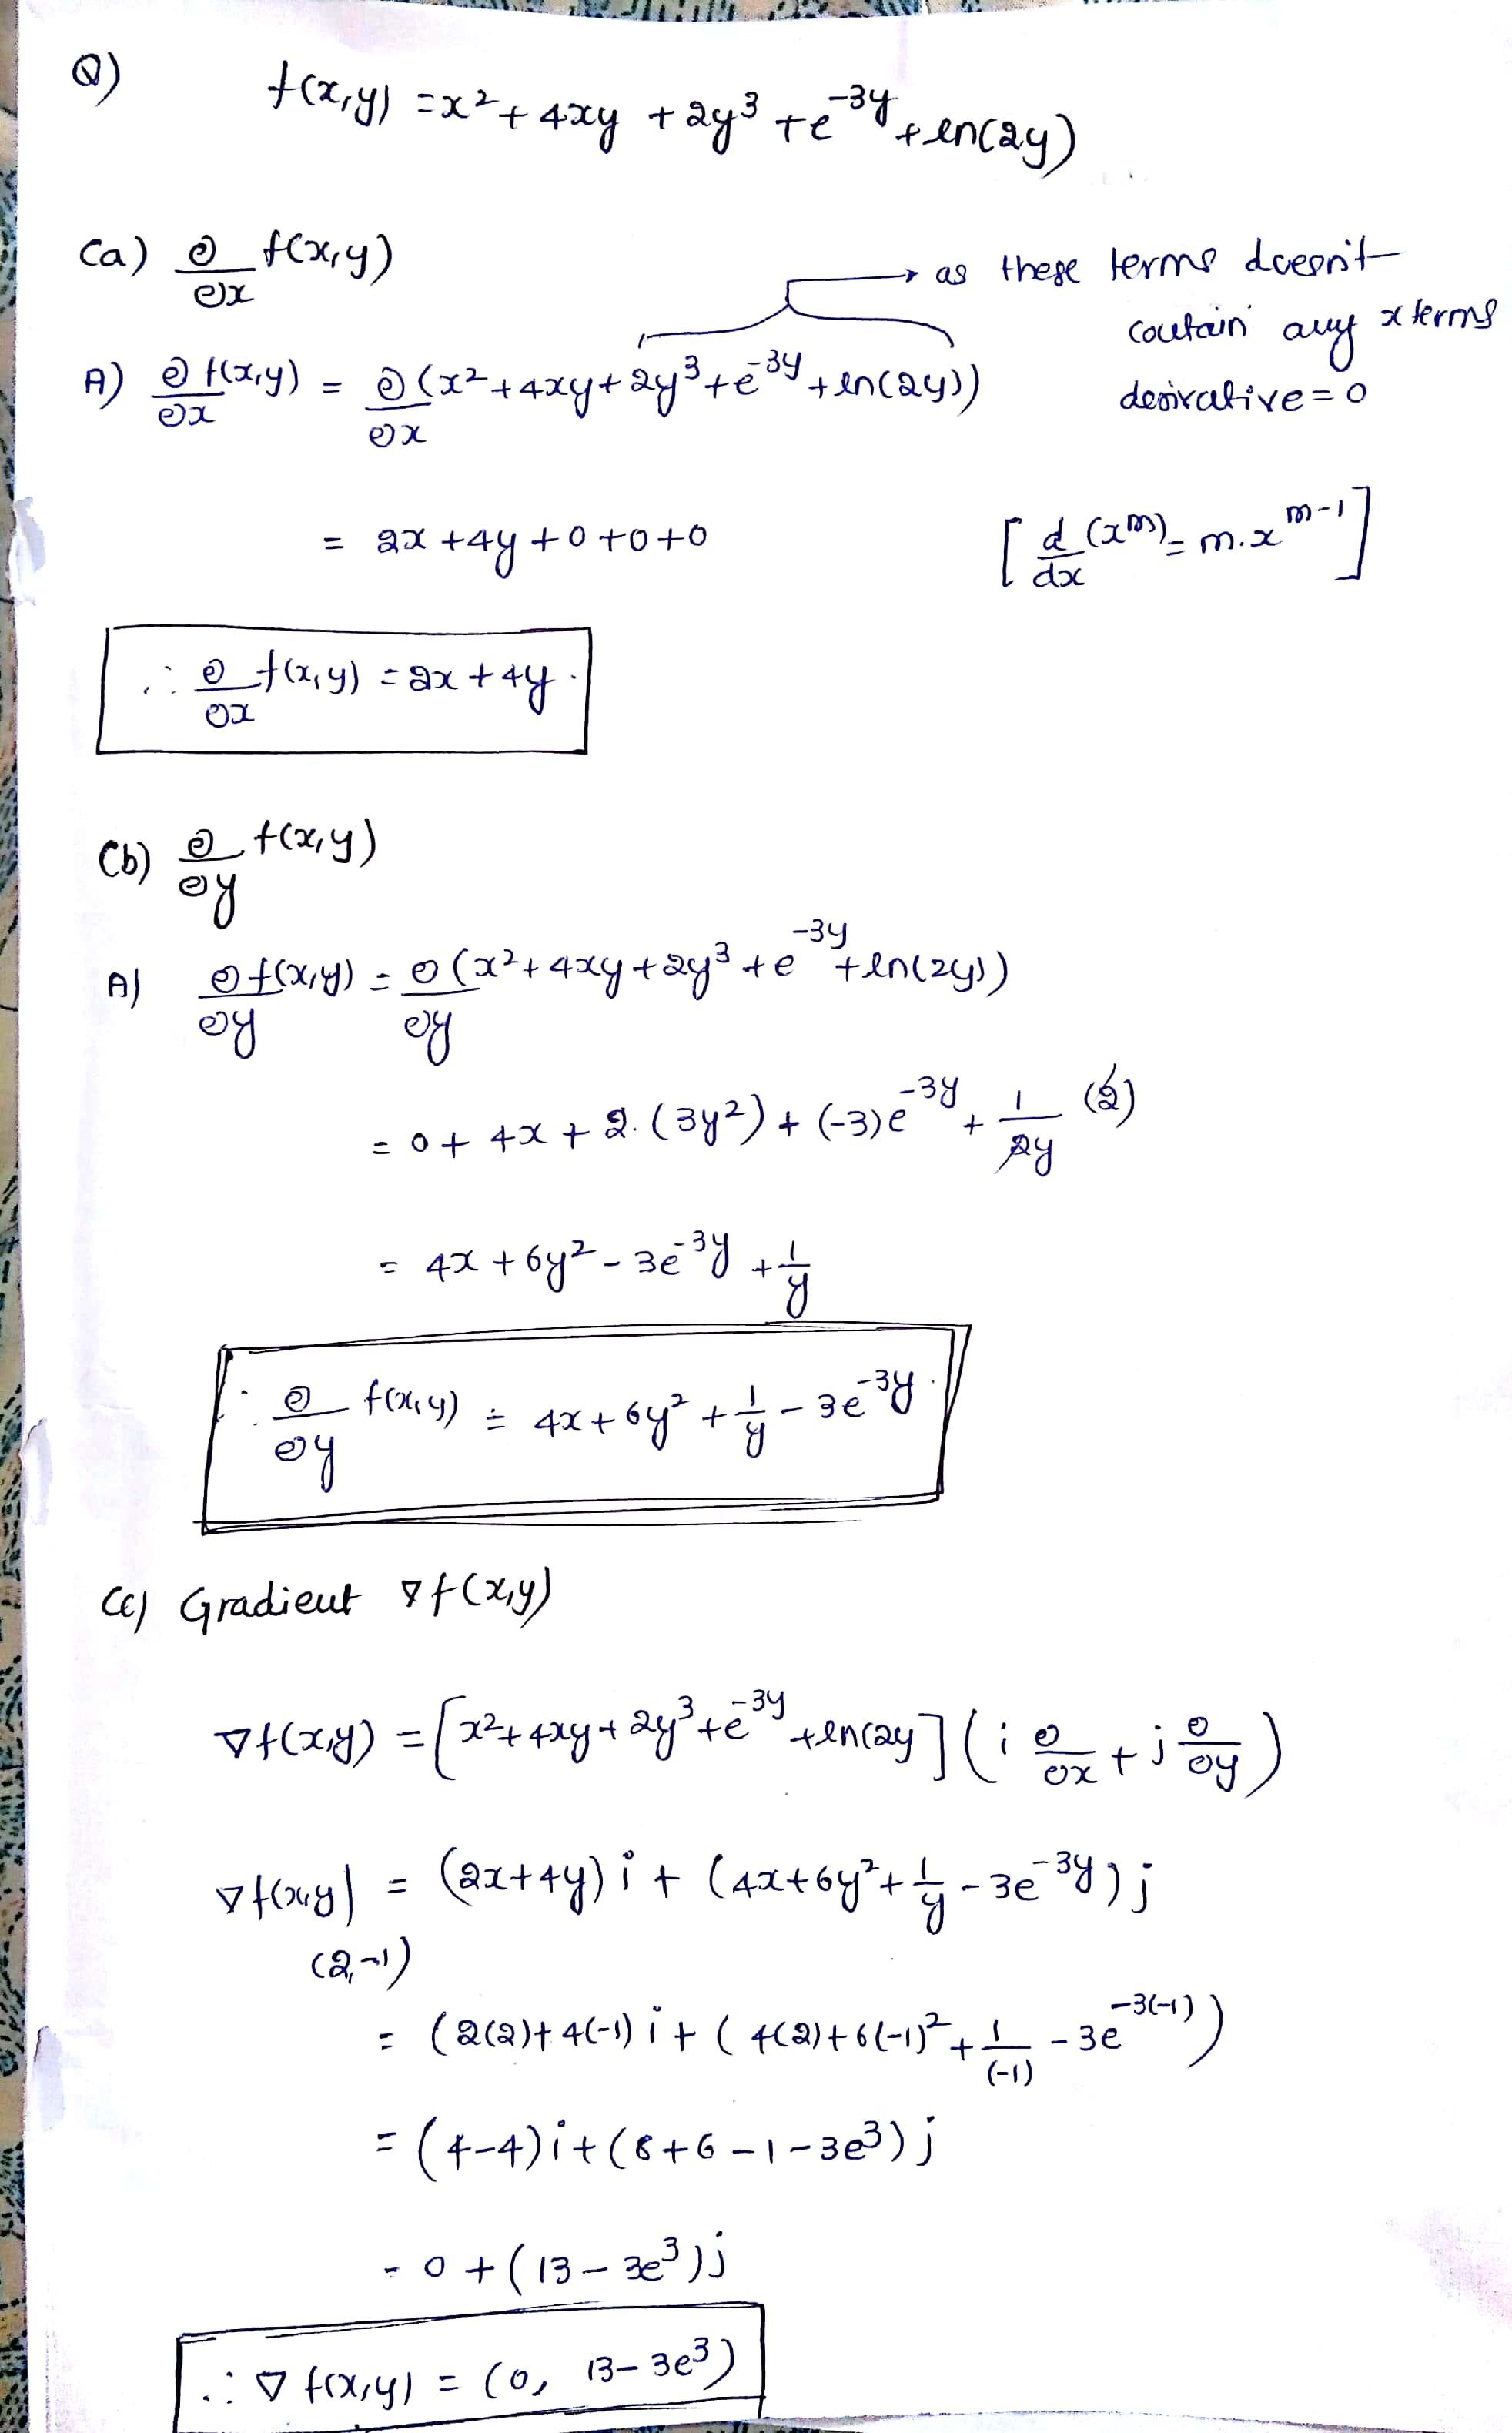 Q) f(x,y) = x² + 4xy + 2y³ + e^-3y + ln(2y)
(a) ∂/∂x f(x,y)
→ as these terms doesn't
contain any x terms
derivative = 0
A) ∂f(x,y)/∂x = ∂/∂x (x² + 4xy + 2y³ + e^-3y + ln(2y))
= 2x + 4y + 0 + 0 + 0 [d/dx (x^m) = m.x^m-1]
∴ ∂/∂x f(x,y) = 2x + 4y.
(b) ∂/∂y f(x,y)
A) ∂f(x,y)/∂y = ∂/∂y (x² + 4xy + 2y³ + e^-3y + ln(2y))
= 0 + 4x + 2.(3y²) + (-3)e^-3y + 1/2y (2)
= 4x + 6y² - 3e^-3y + 1/y
∴ ∂/∂y f(x,y) = 4x + 6y² + 1/y - 3e^-3y.
(c) Gradient ∇f(x,y)
∇f(x,y) = [x² + 4xy + 2y³ + e^-3y + ln(2y] (i ∂/∂x + j ∂/∂y)
∇f(x,y)| = (2x+4y)i + (4x+6y² + 1/y - 3e^-3y)j
(2,-1)
= (2(2)+4(-1) i + (4(2)+6(-1)² + 1/(-1) - 3e^-3(-1))
= (4-4)i + (8+6-1-3e³)j
= 0 + (13-3e³)j
∴ ∇f(x,y) = (0, 13-3e³)